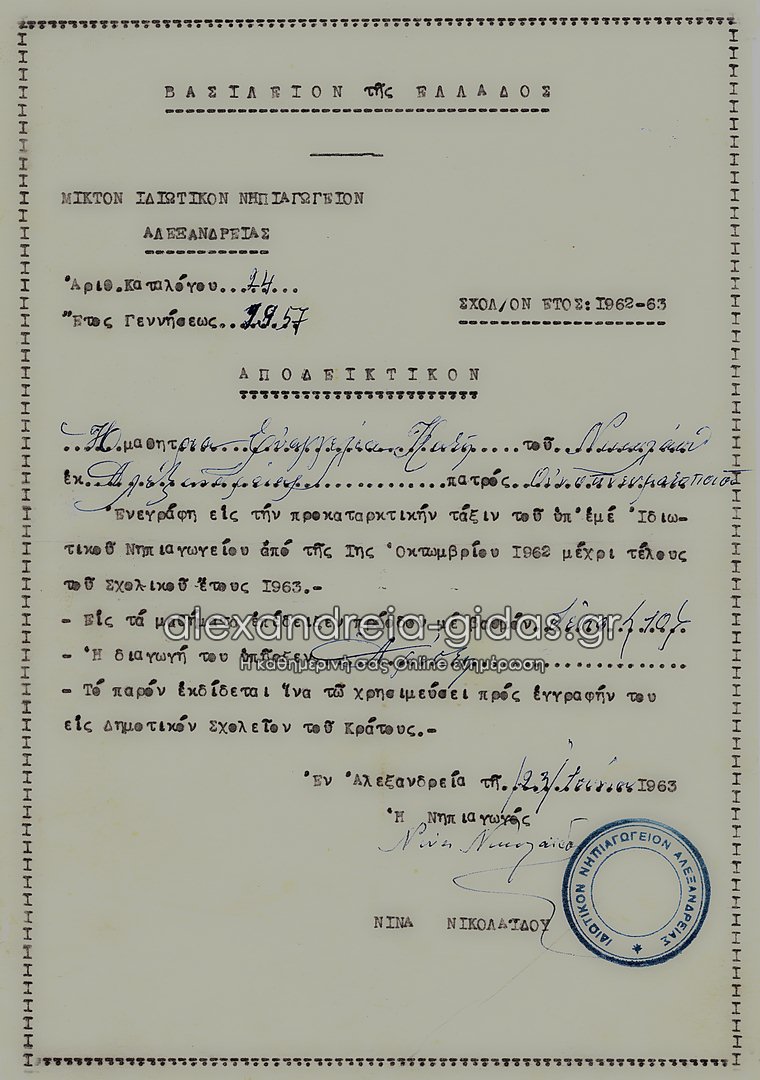 ΒΑΣΙΛΕΙΟΝ τῆς ΕΛΛΑΔΟΣ
ΜΙΚΤΟΝ ΙΔΙΩΤΙΚΟΝ ΝΗΠΙΑΓΩΓΕΙΟΝ
ΑΛΕΞΑΝΔΡΕΙΑΣ
Ἀριθ.Καταλόγου..24...
Ἔτος Γεννήσεως..1957
ΣΧΟΛ/ΟΝ ΕΤΟΣ: 1962-63
ΑΠΟΔΕΙΚΤΙΚΟΝ
..Ἡ.μαθητρια Εὐαγγελία....τοῦ..Νικολάου
ἐκ.Ἀλεξανδρείας............πατρός.Οἰνοπνευματοποιοῦ
Ἐνεγράφη εἰς τήν προκαταρκτικήν τάξιν τοῦ ὑπ'ἐμέ Ἰδιω-
τικοῦ Νηπιαγωγείου ἀπό τῆς Ιης Ὀκτωμβρίου 1962 μέχρι τέλους
τοῦ Σχολικοῦ ἔτους 1963.-
- Εἰς τά μαθήματα ἐπέδειξεν πρόοδον μέ βαθμόν Δέκα (10)
alexandreia-gidas.gr
- Ἡ διαγωγή του ὑπῆρξεν
Η καθημερινή σας Online ενημέρωση
- Τό παρόν ἐκδίδεται ἵνα τῶ χρησιμεύσει πρός ἐγγραφήν του
εἰς Δημοτικόν Σχολεῖον τοῦ Κράτους.-
Ἐν Ἀλεξανδρεία τῆ.23 Ἰουνίου 1963
Ἡ Νηπιαγωγός
Νίνα Νικολαΐδου
ΝΙΝΑ ΝΙΚΟΛΑΪΔΟΥ
ΙΔΙΩΤΙΚΟΝ ΝΗΠΙΑΓΩΓΕΙΟΝ ΑΛΕΞΑΝΔΡΕΙΑΣ